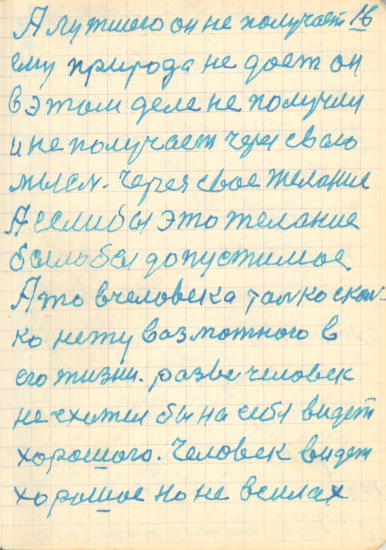 А лутшого он не получает 16
ему природа не дает он
в этом деле не получил
и не получает через свою
мысл. Через свое желание
А если бы это желание
было бы допустимое
А то в человека толко скол-
ко нету возможного в
его жизни. разве человек
не схотел бы на себя видет
хорошого. Человек видет
хорошое но не в силах